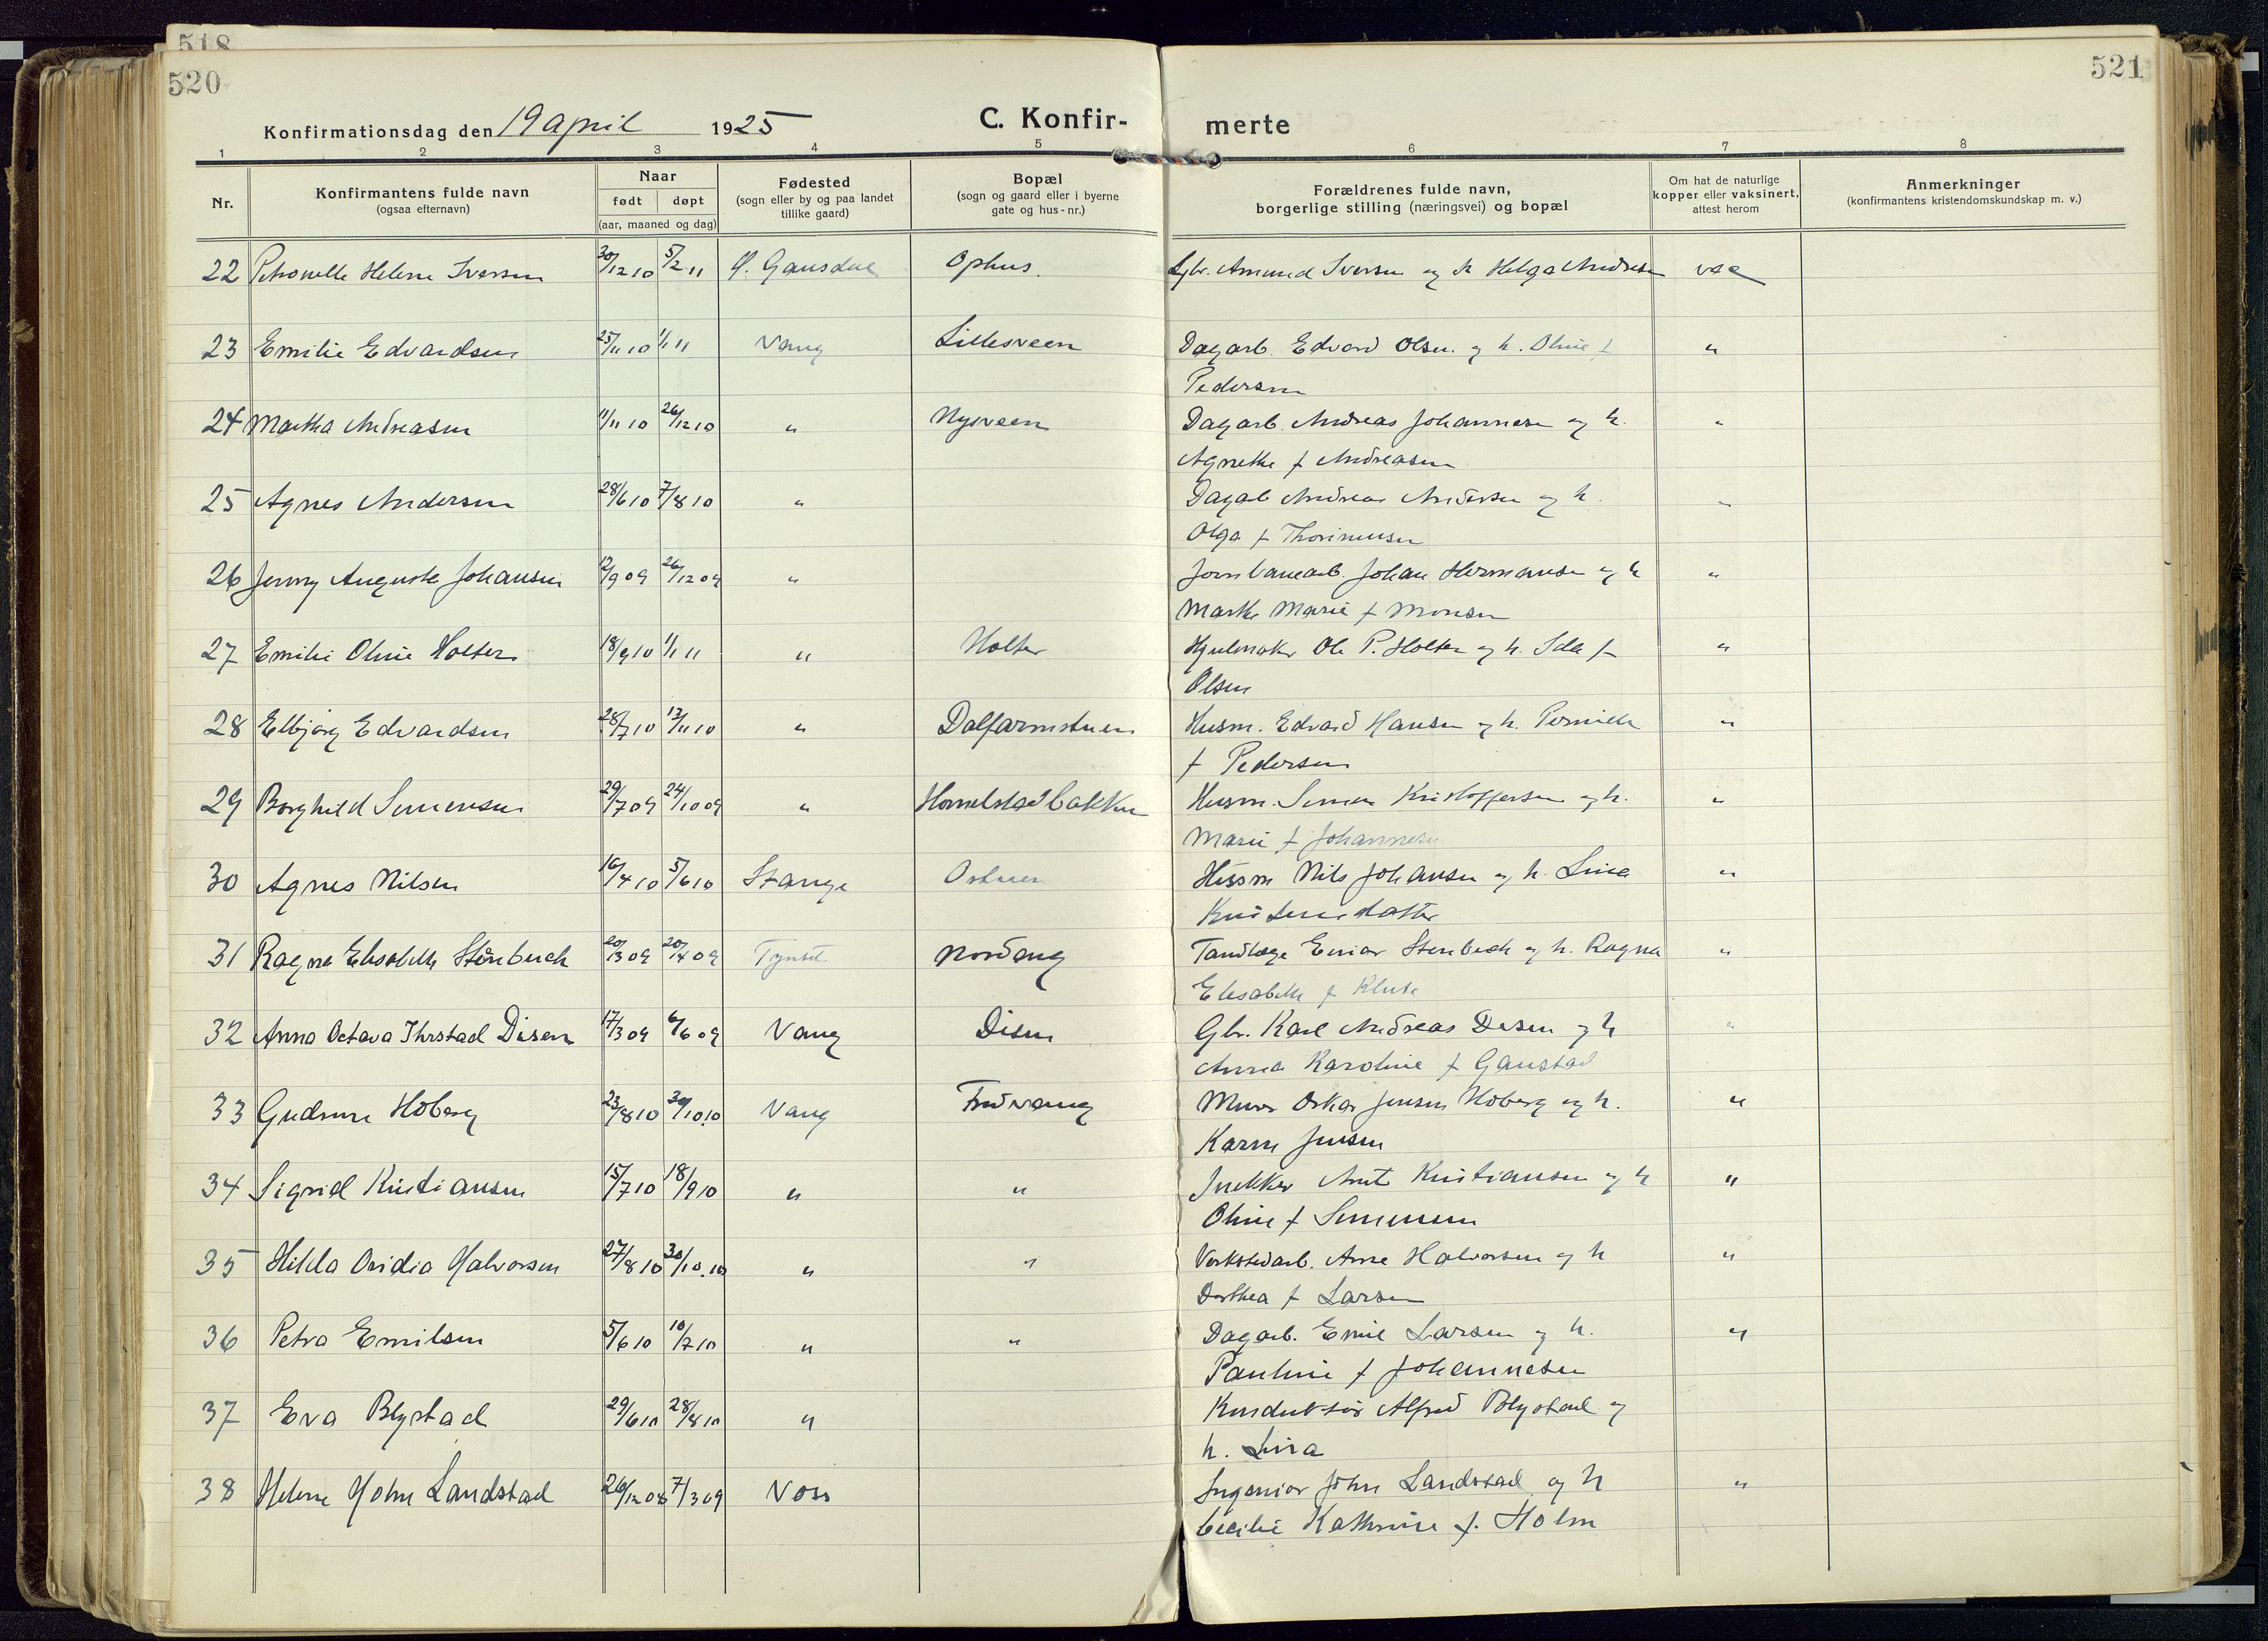 518
520
521
Konfirmationsdag den 19 april 1925
C. Konfir-
merte
1 2 3 4 5 6 7 8
Nr.
Konfirmantens fulde navn
(ogsaa efternavn)
Naar
født døpt
(aar, maaned og dag)
Fødested
(sogn eller by og paa landet
tillike gaard)
Bopæl
(sogn og gaard eller i byerne
gate og hus-nr.)
Forældrenes fulde navn,
borgerlige stilling (næringsvei) og bopæl
Om hat de naturlige
kopper eller vaksinert,
attest herom
Anmerkninger
(konfirmantens kristendomskundskap m. v.)
22 Petronelle Helene Iversen 30/12 10 5/2 11 Ø. Gausdal Ophus. Amund Iversen og h Helga Andresen vac
23 Emilie Edvardsen 25/11 10 1/1 11 Vang Lillesveen Dagarb. Edvard Olsen og h. Oline f "
Pedersen
24 Martha Andreasen 11/11 10 26/12 10 " Nysveen Dagarb. Andreas Johannesen og h. "
Agnethe f Andreasen
25 Agnes Andersen 28/6 10 7/8 10 " Dagarb Andreas Andersen og h. "
Olga f Thorimusen
26 Jenny Auguste Johansen 12/9 09 26/12 09 " Jernbanearb. Johan Hermansen og h "
Marthe Marie f Monsen
27 Emilie Oline Holter 18/9 10 1/1 11 " Holter Hjulmaker Ole P. Holter og h. Ida f "
Olsen
28 Elbjørg Edvardsen 28/7 10 13/11 10 " Dalfarmstuen Husm. Edvard Hansen og h. Pernille "
f Pedersen
29 Borghild Simensen 29/7 09 24/10 09 " Hornelstadbakken Husm. Simen Kristoffersen og h. "
Marie f Johannesen
30 Agnes Nilsen 16/4 10 5/6 10 Stange Ostuen Husm Nils Johansen og h. Lina "
Kristensdatter
31 Ragna Elisabeth Stenbuch 20/3 09 20/4 09 Tynset Nordvang Tandlæge Einar Stenbuch og h. Ragna "
Elisabeth f Klute
32 Anna Octava Ihrstad Disen 17/3 09 6/6 09 Vang Disen Gbr. Karl Andreas Disen og h "
Anna Karoline f Gaustad
33 Gudrun Hoberg 23/8 10 30/10.10 Vang Fredvang Murer Oskar Jensen Hoberg og h. "
Karen Jensen
34 Sigrid Kristiansen 15/7 10 18/9 10 " " Snekker Arnt Kristiansen og h "
Oline f Simensen
35 Hilda Ovidia Halvorsen 27/8 10 30/10.10 " " Verkstedarb. Arne Halvorsen og h "
Dorthea f Larsen
36 Petra Emilsen 5/6 10 10/7 10 " " Dagarb. Emil Larsen og h. "
Pauline f Johannesen
37 Eva Blystad 29/6 10 28/8 10 " Konduktør Alfred Blystad og
h. Lina
38 Helene Holm Landstad 26/12 08 7/3 09 Voss Ingeniør John Landstad og h "
Cecilie Kathrine f. Holm